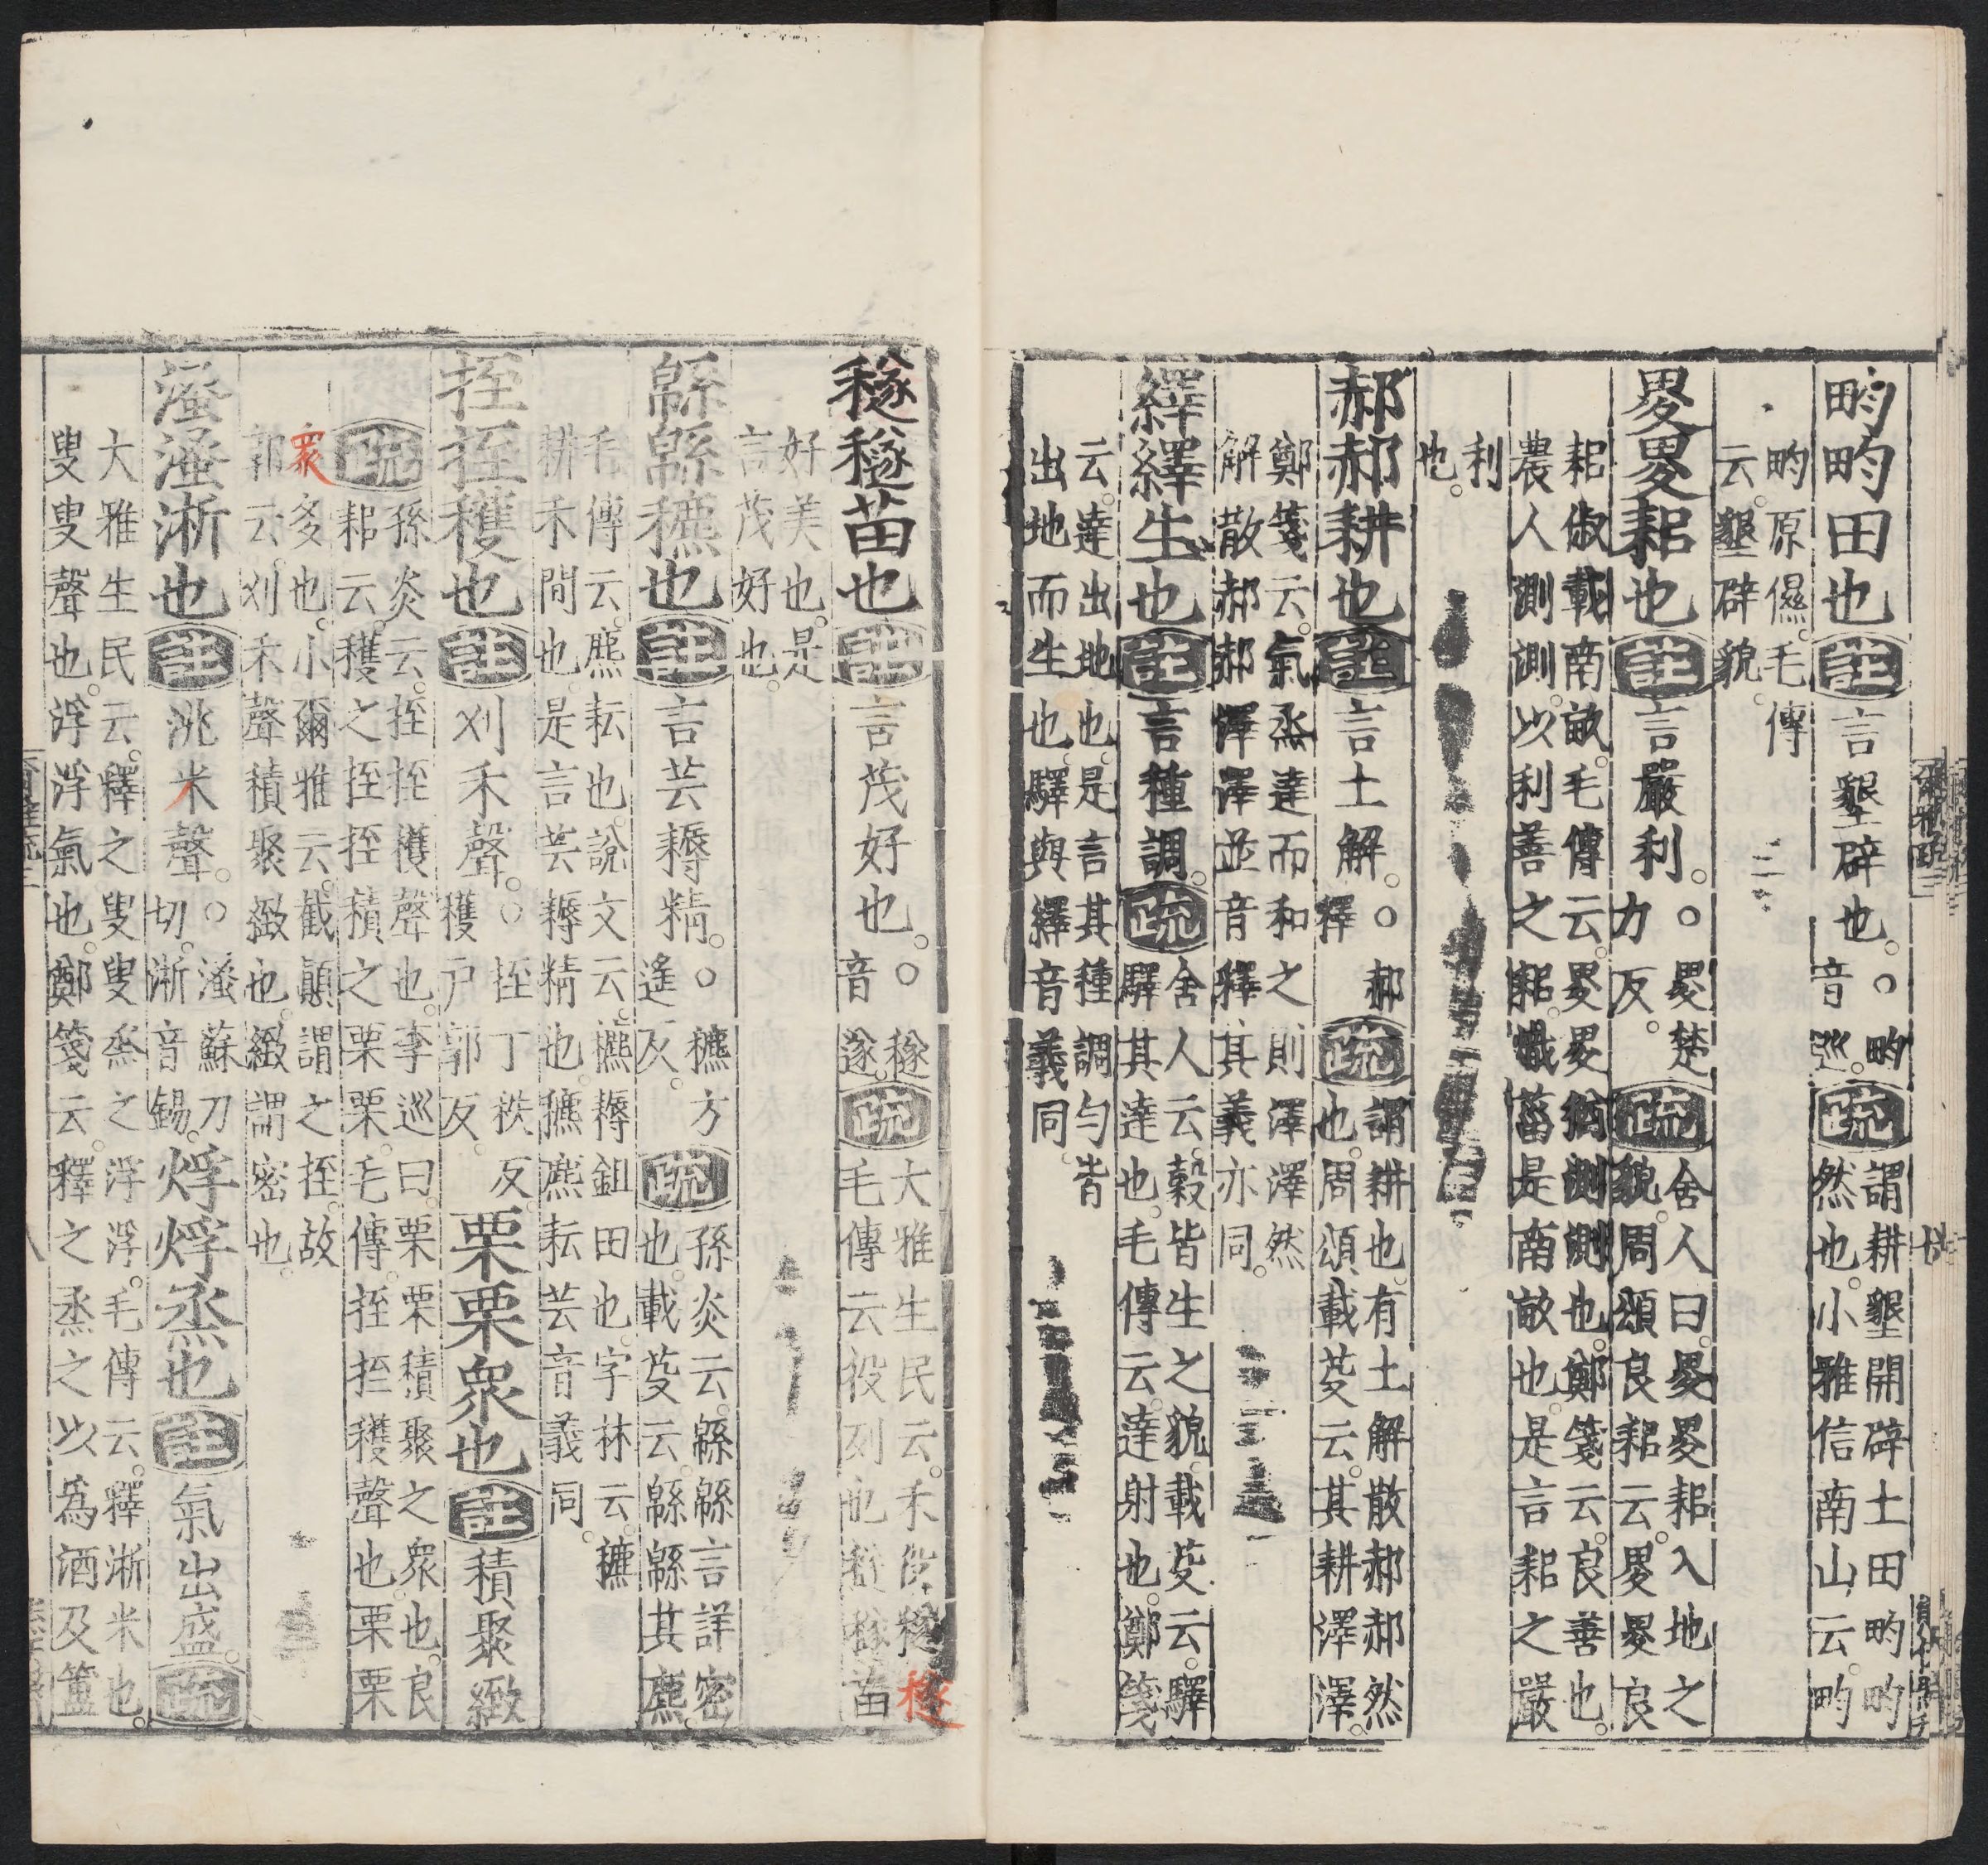 畇畇田也註言墾辟也。○畇音巡。疏謂耕墾開辟土田畇畇
然也。小雅信南山云。畇
畇原隰。毛傳
云墾辟貌。
畟畟耜也註言嚴利。○畟楚力反。疏舍人曰。畟畟耜入地之
貌。周頌良耜云。畟畟良
耜俶載南畝。毛傳云。畟畟猶測測也。鄭箋云。良善也。
農人測測。以利善之耜熾菑是南畝也。是言耜之嚴
利
也。
郝郝耕也註言土解。○郝釋疏謂耕也。有土解散郝郝然
也。周頌載芟云。其耕澤澤。
鄭箋云。氣烝達而和之則澤澤然
解散郝郝澤澤並音釋其義亦同。
繹繹生也註言種調。疏舍人云。穀皆生之貌。載芟云。驛
驛其達也。毛傳云。達射也。鄭箋
云。達出地也。是言其種調勻皆
出地而生也。驛與繹音義同。
爾雅疏三
穟穟苗也註言茂好也。○穟音遂。疏大雅生民云。禾役穟穟
毛傳云役列也穟穟苗
好美也。是
言茂好也。
緜緜穮也註言芸耨精。○穮方遙反。疏孫炎云。緜緜言詳密
也。載芟云。緜緜其麃。
毛傳云。麃耘也。說文云。穮耨鉏田也。字林云。穮
耕禾間也。是言芸耨精也。穮麃耘芸音義同。
挃挃穫也註刈禾聲。○挃丁秩反。穫戶郭反。栗栗眾也註積聚緻
疏孫炎云。挃挃穫聲也。李巡曰。栗栗積聚之眾也。良
耜云。穫之挃挃積之栗栗。毛傳挃挃穫聲也栗栗
眾多也。小爾雅云。截顛謂之挃。故
郭云。刈禾聲積聚緻也。緻謂密也。
溞溞淅也註洮米聲。○溞蘇刀切。淅音錫。烰烰烝也註氣出盛。疏
大雅生民云。釋之叟叟烝之浮浮。毛傳云。釋淅米也。
叟叟聲也。浮浮氣也。鄭箋云。釋之烝之以爲酒及簠